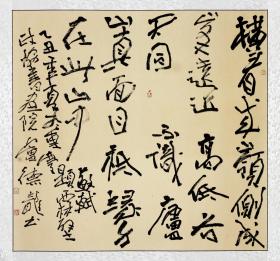 橫看成嶺側成
峰遠近高低各
不同不識廬
山真面目秖緣身
在此山中 蘇軾
題西林壁
書畫院